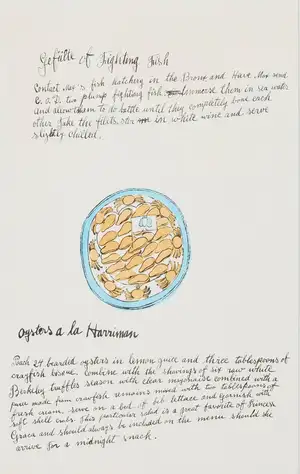 Gefilte of Fighting Fish
Contact Max's fish Hatchery in the Bronx and Have Max send
C.O.D. two plump fighting fish. Immerse them in sea water
and allow them to do battle until they completely bone each
other. Take the filets, stir in white wine and serve
slightly chilled.
Oysters a la Harriman
Poach 24 bearded oysters in lemon juice and three tablespoons of
crayfish bisque. Combine with the shavings of six raw white
Berkeley truffles season with clear mayonaise combined with a
puree made from crawfish remains mixed with two tablespoons of
fresh cream. serve on a bed of bib lettuce and garnish with
soft shell crabs. This particular salad is a great favorite of Princess
Grace and should always be included on the menu should she
arrive for a midnight snack.